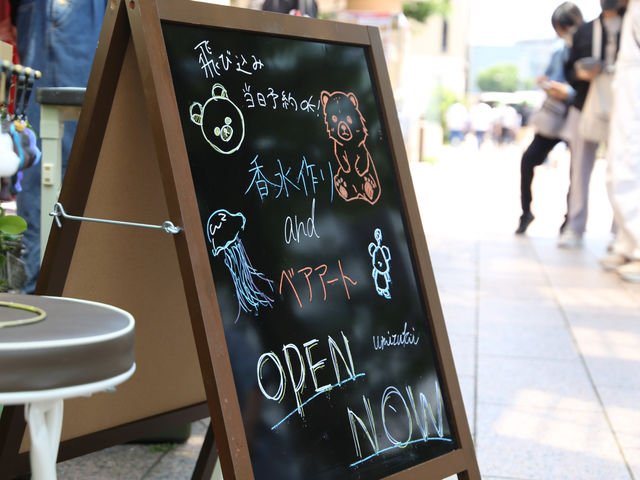 飛び込み
当日予約OK!
香水作り
and
ベアアート
umizukii
OPEN
NOW